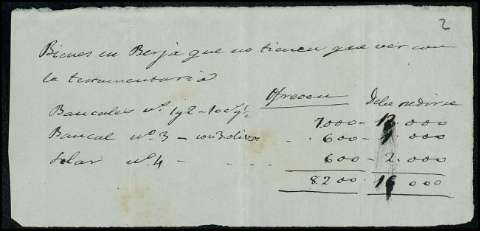 2
Bienes en Berja que no tienen que ver con
la testamentaria
Ofrecen Debe pedirse
Bancales nº 1 y 2 -
7.000 - 13.000
Bancal nº 3 - con olivos - 600 - 1.000
Solar nº 4 - - - 600 - 2.000
8.200 16.000